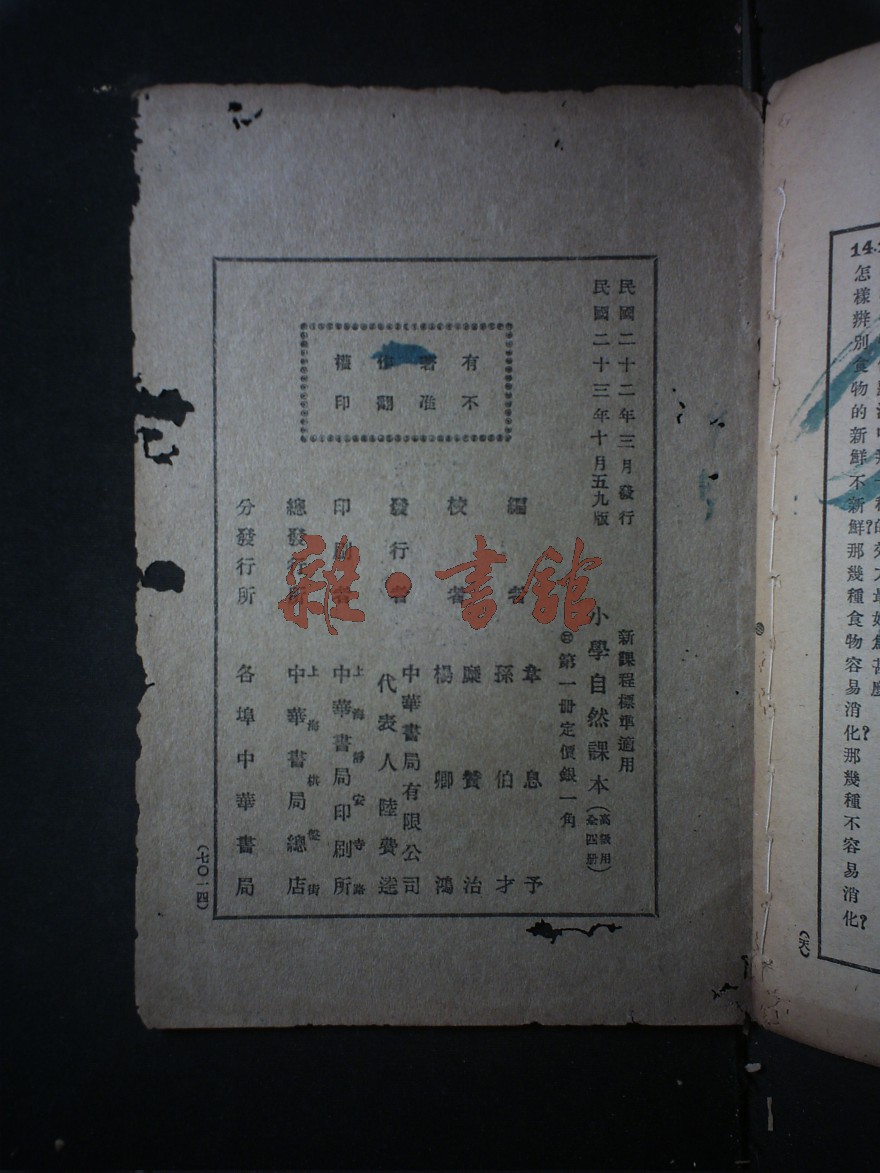 14.
怎樣辨別食物的新鮮不新鮮?那幾種食物容易消化?那幾種不容易消化?
民國二十二年三月發行
民國二十三年十月五九版
新課程標準適用
小學自然課本(高級用 全四册)
第一冊定價銀一角
有著作權
不准翻印
編者 章息予
孫伯才
校者 龐贊治
楊卿鴻
發行者 中華書局有限公司
代表人陸費逵
印刷者 上海靜安寺路
中華書局印刷所
總發行所 上海棋盤街
中華書局總店
分發行所 各埠中華書局
(七〇一四)
雜·書館